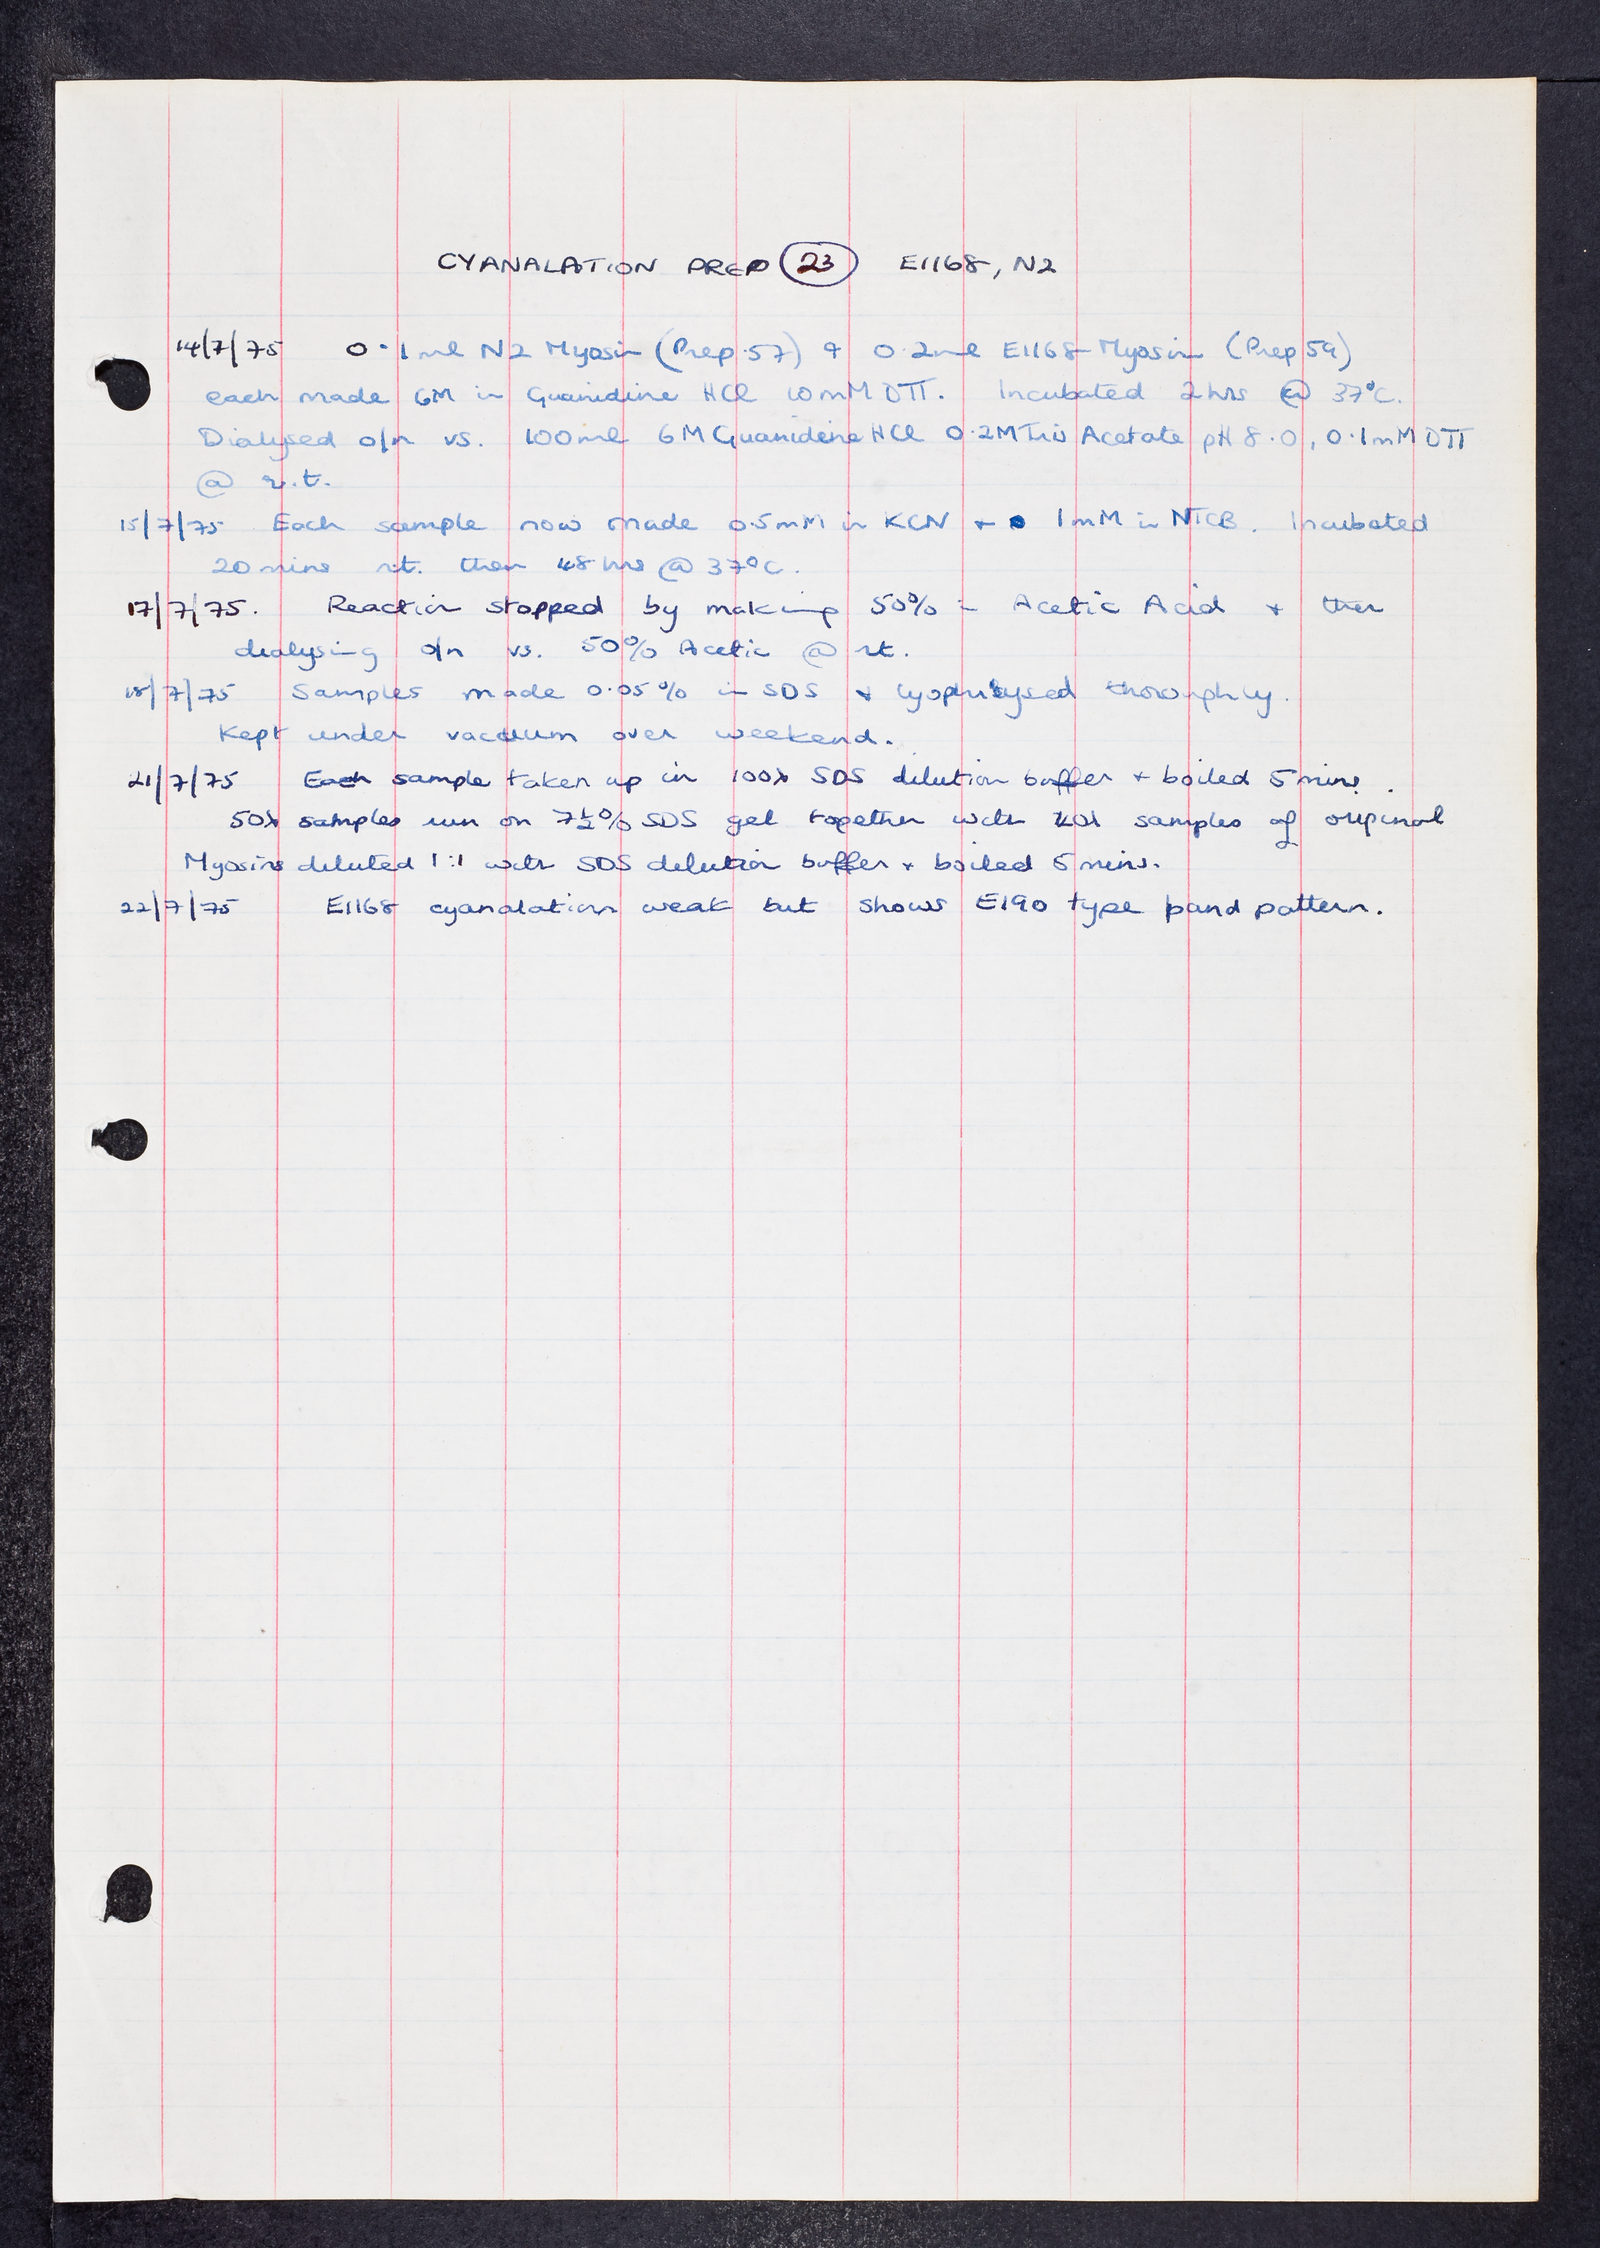 CYANALATION PREP 23 E1168, N2
14/7/75 0.1ml N2 Myosin (Prep 57) & 0.2ml E1168 Myosin (Prep 59)
each made 6M in Guanidine HCl 10mM DTT. Incubated 2hrs @ 37°C.
Dialysed o/n vs. 100ml 6M Guanidine HCl 0.2M Tris Acetate pH 8.0, 0.1mM DTT
@ r.t.
15/7/75 Each sample now made 0.5mM in KCN + 1mM in NTCB. Incubated
20mins rt. then 48hrs @ 37°C.
17/7/75. Reaction stopped by making 50% in Acetic Acid + then
dialysing o/n vs. 50% Acetic @ rt.
18/7/75 Samples made 0.05% in SDS + lyophilysed thoroughly.
Kept under vacuum over weekend.
21/7/75 Each sample taken up in 100λ SDS dilution buffer + boiled 5mins.
50λ samples run on 7½% SDS gel together with samples of original
Myosins diluted 1:1 with SDS dilution buffer + boiled 5mins.
22/7/75 E1168 cyanalation weak but shows E190 type band pattern.